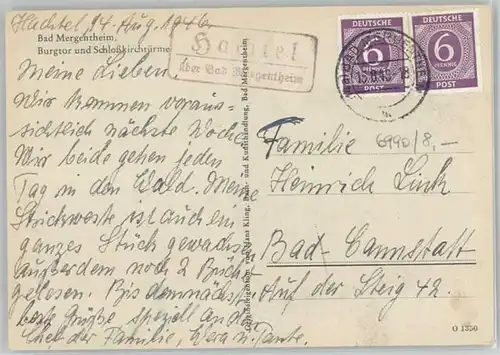 Hachtel, 14. Aug. 1946.
Bad Mergentheim,
Burgtor und Schloßkirchtürme
Hachtel
über Bad Mergentheim
DEUTSCHE
6
PFENNIG
POST
DEUTSCHE
6
PFENNIG
POST
Meine Lieben
Wir kommen voraus-
sichtlich nächste Woche
Wir beide gehen jeden
Tag in den Wald. Meine
Strickweste ist auch ein
ganzes Stück gewachsen
außerdem noch 2 Bücher
gelesen. Bis demnächst
beste Grüße speziell an den
Chef der Familie, Wera u. Tante.
Hans Kling, Buch- und Kunsthandlung, Bad Mergentheim
6990/8,-
Familie
Heinrich Link
Bad-Cannstatt
Auf der Steig 42.
O 1350